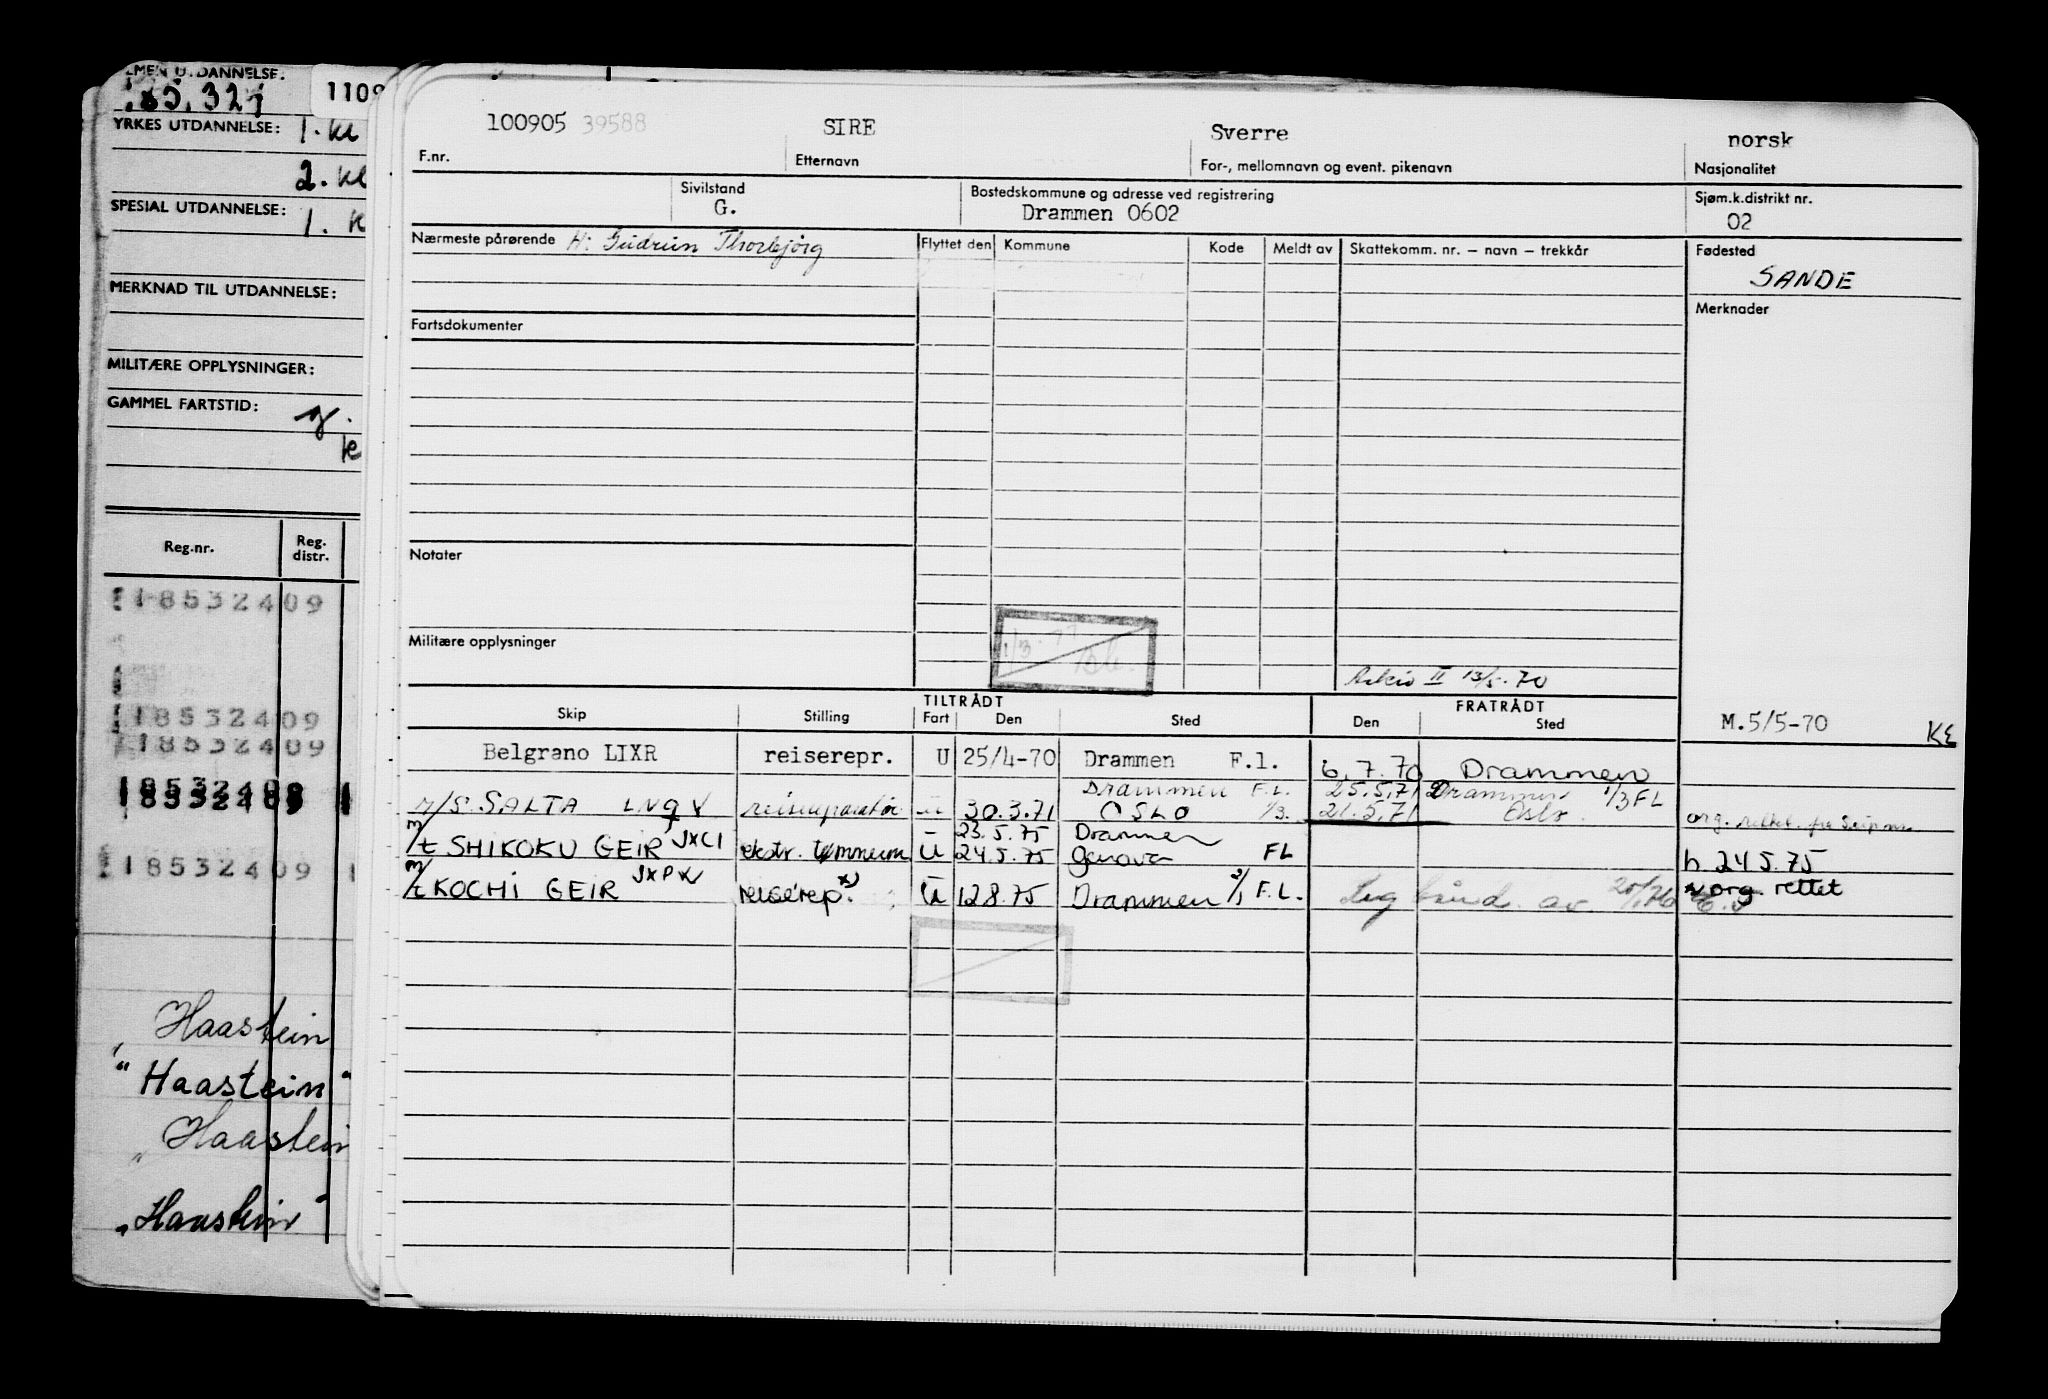 UTDANNELSE:
1109
YRKES UTDANNELSE: 1. kl
2. kl
SPESIAL UTDANNELSE: 1. k
MERKNAD TIL UTDANNELSE:
MILITÆRE OPPLYSNINGER:
GAMMEL FARTSTID:
Reg.nr. Reg. distr.
18532409
18532409
18532409
18532409
18532409
Haastein
"Haastein"
Haastein
"Haastein"
100905 39588 SIRE Sverre norsk
F.nr. Etternavn For-, mellomnavn og event. pikenavn Nasjonalitet
Sivilstand Bostedskommune og adresse ved registrering Sjøm.k.distrikt nr.
G. Drammen 0602 02
Nærmeste pårørende H: Gudrun Thorbjørg Flyttet den Kommune Kode Meldt av Skattekomm. nr. – navn – trekkår Fødested
SANDE
Merknader
Fartsdokumenter
Notater
Militære opplysninger
1/3.77
Arkiv II 13/5-70
TILTRÅDT FRATRÅDT
Skip Stilling Fart Den Sted Den Sted M.5/5-70 KE
Belgrano LIXR reiserepr. U 25/4-70 Drammen F.l. 6.7.70 Drammen
Drammen F.L. 25.5.71 Drammen 1/3 FL
M/S. SALTA reisereparatør U 30.3.71 OSLO 1/3. 21.5.71 Oslo
23.5.75 Drammen
M/T SHIKOKU GEIR JXCI ekstr. tømmerm U 24.5.75 Genova FL h. 24.5.75
M/T KOCHI GEIR JXPX reiserep. x) U 12.8.75 Drammen 2/1 F.L. av. 20/1 76 org. rettet